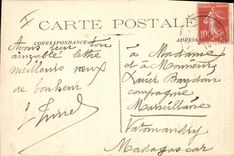 CARTE POSTALE
CORRESPONDANCE
ADRESSE
Avons reçu ton
aimable lettre
meilleurs vœux
de bonheur
à Madame
et à Monsieur
Xavier
Compagnie
Marseillaise
Vatomandry
Madagascar
10